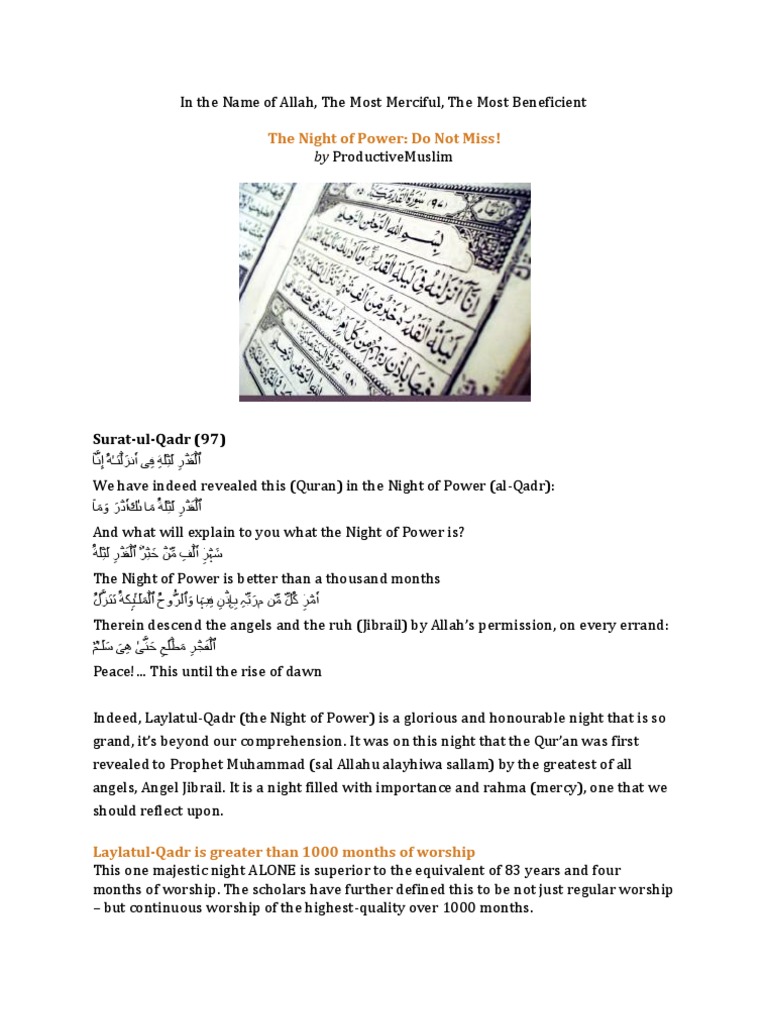 In the Name of Allah, The Most Merciful, The Most Beneficient
The Night of Power: Do Not Miss!
by ProductiveMuslim
بِسْمِ اللهِ الرَّحْمٰنِ الرَّحِيْمِ
اِنَّآ اَنْزَلْنٰهُ فِيْ لَيْلَةِ الْقَدْرِ وَمَآ اَدْرٰىكَ مَا لَيْلَةُ الْقَدْرِ
لَيْلَةُ الْقَدْرِ خَيْرٌ مِّنْ اَلْفِ شَهْرٍ تَنَزَّلُ
فِيْهَا بِاِذْنِ رَبِّهِمْ مِّنْ كُلِّ اَمْرٍ سَلٰمٌ هِيَ حَتّٰى
Surat-ul-Qadr (97)
ٱلْقَدْرِ لَيْلَةِ فِى أَنزَلْنَـٰهُ إِنَّآ
We have indeed revealed this (Quran) in the Night of Power (al-Qadr):
ٱلْقَدْرِ لَيْلَةُ مَا ٮٰكَأَدْرَ وَمَآ
And what will explain to you what the Night of Power is?
شَہْرٍ أَلْفِ مِّنْ خَيْرٌ ٱلْقَدْرِ لَيْلَةُ
The Night of Power is better than a thousand months
أَمْرٍ كُلِّ مِّن مرَبِّہِ بِإِذْنِ فِيہَا وَٱلرُّوحُ ٱلْمَلَـٰٓئِكَةُ تَنَزَّلُ
Therein descend the angels and the ruh (Jibrail) by Allah’s permission, on every errand:
ٱلْفَجْرِ مَطْلَعِ حَتَّىٰ هِىَ سَلَـٰمٌ
Peace!... This until the rise of dawn
Indeed, Laylatul-Qadr (the Night of Power) is a glorious and honourable night that is so
grand, it’s beyond our comprehension. It was on this night that the Qur’an was first
revealed to Prophet Muhammad (sal Allahu alayhiwa sallam) by the greatest of all
angels, Angel Jibrail. It is a night filled with importance and rahma (mercy), one that we
should reflect upon.
Laylatul-Qadr is greater than 1000 months of worship
This one majestic night ALONE is superior to the equivalent of 83 years and four
months of worship. The scholars have further defined this to be not just regular worship
– but continuous worship of the highest-quality over 1000 months.